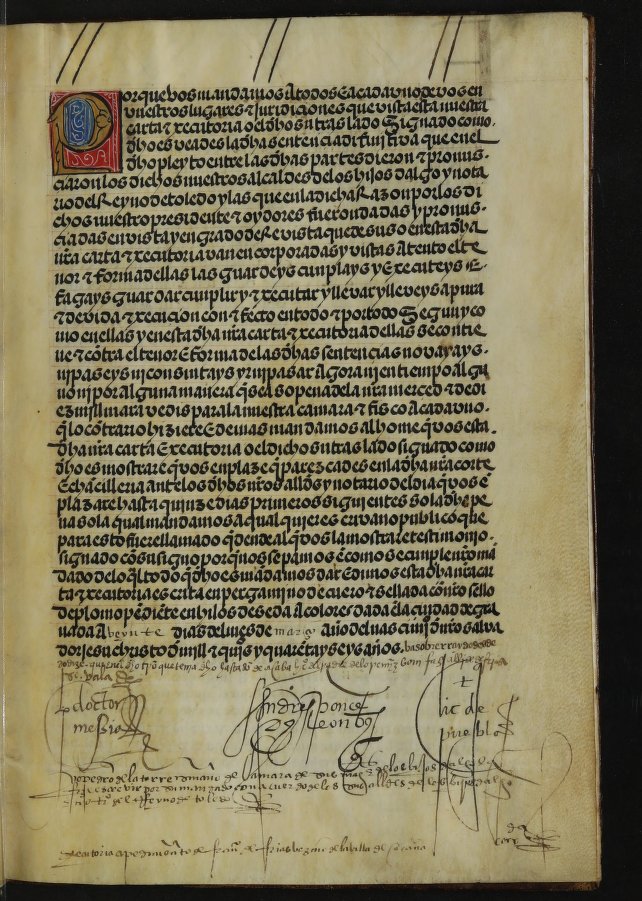 Porque vos mandamos a todos e a cada uno de vos en
vuestros lugares e juridiciones que vista esta nuestra
carta executoria o el dho su traslado signado como
dho es veades la dha sentencia difinitiva que en el
dho pleyto entre las dhas partes dieron e pronun-
ciaron los dichos nuestros alcaldes de los hijos dalgo y nota
rio del Reyno de toledo y las que en la dicha Razon por los di
chos nuestro presidente e oydores fueron dadas y pronun-
ciadas en vista y en grado de Revista que de suso en esta dha
nra carta executoria van encorporadas y vistas atento el te
nor e forma dellas las guardeys cunplays y executeys e
fagays guardar cumplir y executar y llevar y lleveys a pura
e devida execucion con efecto en todo e por todo segun y co
mo en ellas y en esta dha nra carta executoria dellas se contie
ne e contra el tenor e forma de las dhas sentencias no vayays
ni paseys ni consintays yr ni pasar agora ni en tiempo algu
no ni por alguna manera q sea so pena de la nra merced e de di
ez mill maravedis para la nuestra camara e fisco a cada uno
q lo contrario hiziere e demas mandamos al home q vos esta
dha nra carta executoria o el dicho su traslado signado como
dho es mostrare q vos enplaze q parezcades en la dha nra corte
e chancilleria ante los dhos nros alldes y notario del dia q vos en
plazare hasta quinze dias primeros siguientes so la dha pe
na so la qual mandamos a qualquier escrivano publico que
para esto fuere llamado q dende al q vos la mostrare testimonio
signado con su signo porq nos sepamos en como se cunple nro man
dado de lo ql todo q dho es mandamos dar e dimos esta dha nra car
ta executoria escrita en pergamino de cuero e sellada con nro sello
de plomo pendiente en hilos de seda a colores dada en la ciudad de gra
nada a veynte dias del mes de março año del nascimiento de nro salva
dor iesu christo de mill e quinientos y quarenta y seys años.
El doctor
messia
Andres ponce
de leon
El lic de
pueblo
Yo pedro de la torre escrivano de camara de sus mages
la fize escrevir por su mandado con acuerdo de los sus alldes de los hijos dalgo
y notario del Reyno de toledo
executoria a pedimiento de